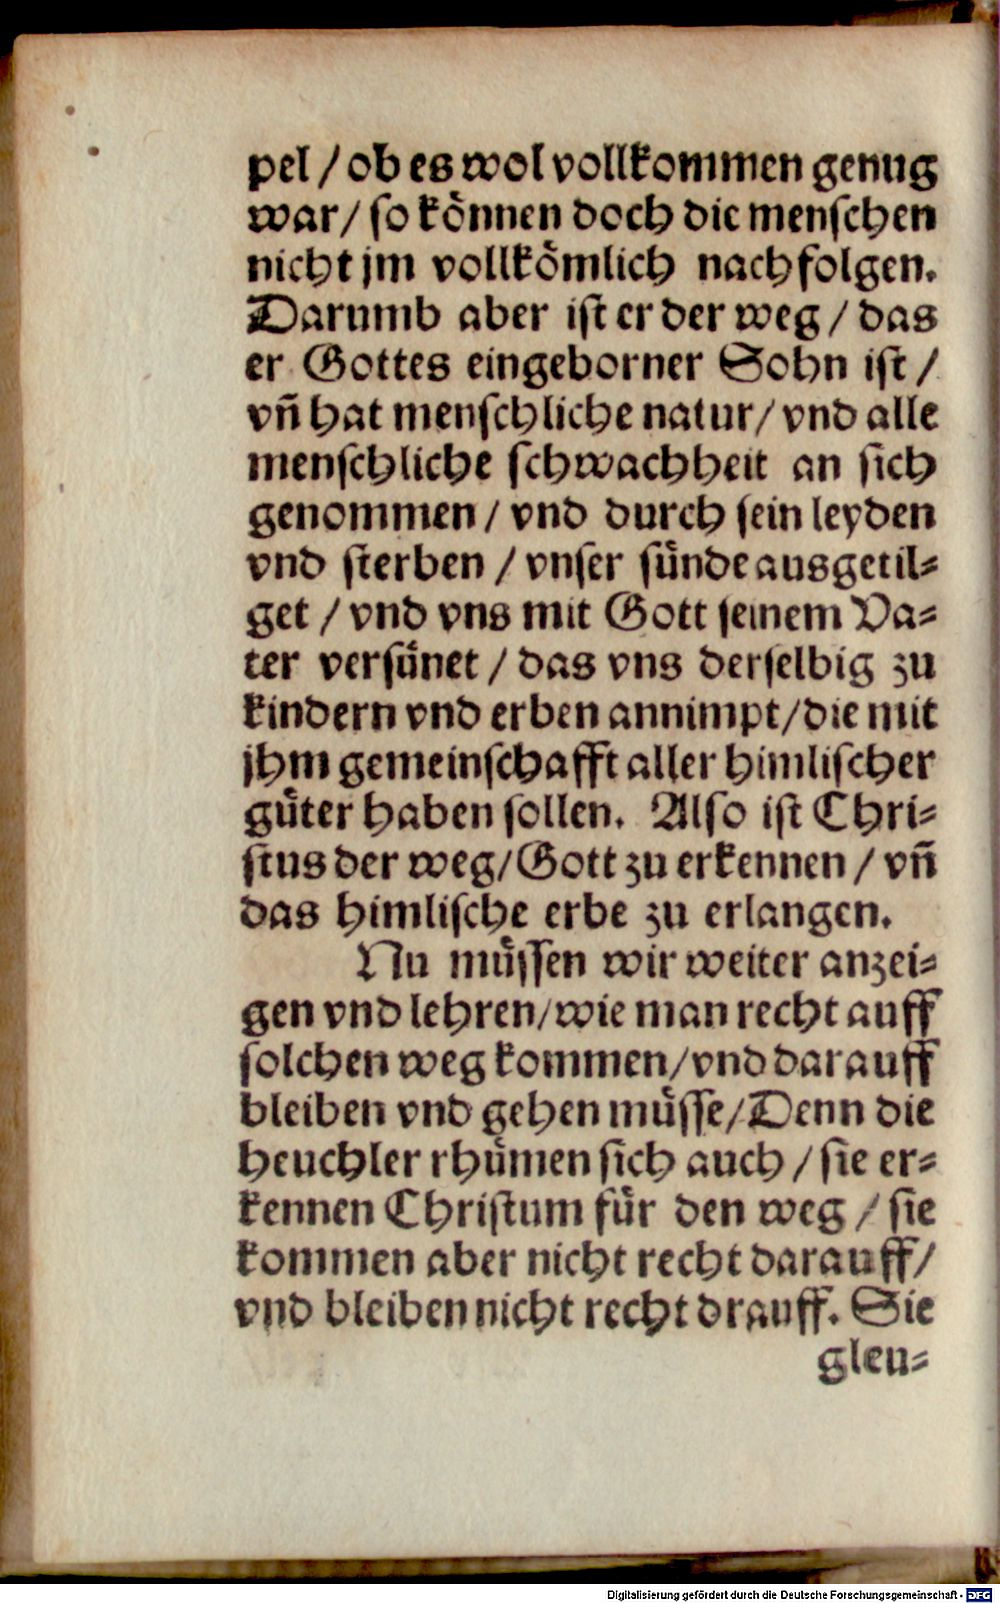 pel / ob es wol vollkommen genug
war / so koͤnnen doch die menschen
nicht jm vollkoͤmlich nachfolgen.
Darumb aber ist er der weg / das
er Gottes eingeborner Sohn ist /
vñ hat menschliche natur / vnd alle
menschliche schwachheit an sich
genommen / vnd durch sein leyden
vnd sterben / vnser suͤnde ausgetil-
get / vnd vns mit Gott seinem Va-
ter versuͤnet / das vns derselbig zu
kindern vnd erben annimpt / die mit
jhm gemeinschafft aller himlischer
guͤter haben sollen. Also ist Chri-
stus der weg / Gott zu erkennen / vñ
das himlische erbe zu erlangen.
Nu muͤssen wir weiter anzei-
gen vnd lehren / wie man recht auff
solchen weg kommen / vnd darauff
bleiben vnd gehen muͤsse / Denn die
heuchler rhuͤmen sich auch / sie er-
kennen Christum fuͤr den weg / sie
kommen aber nicht recht darauff /
vnd bleiben nicht recht drauff. Sie
gleu-
Digitalisierung gefördert durch die Deutsche Forschungsgemeinschaft - DFG